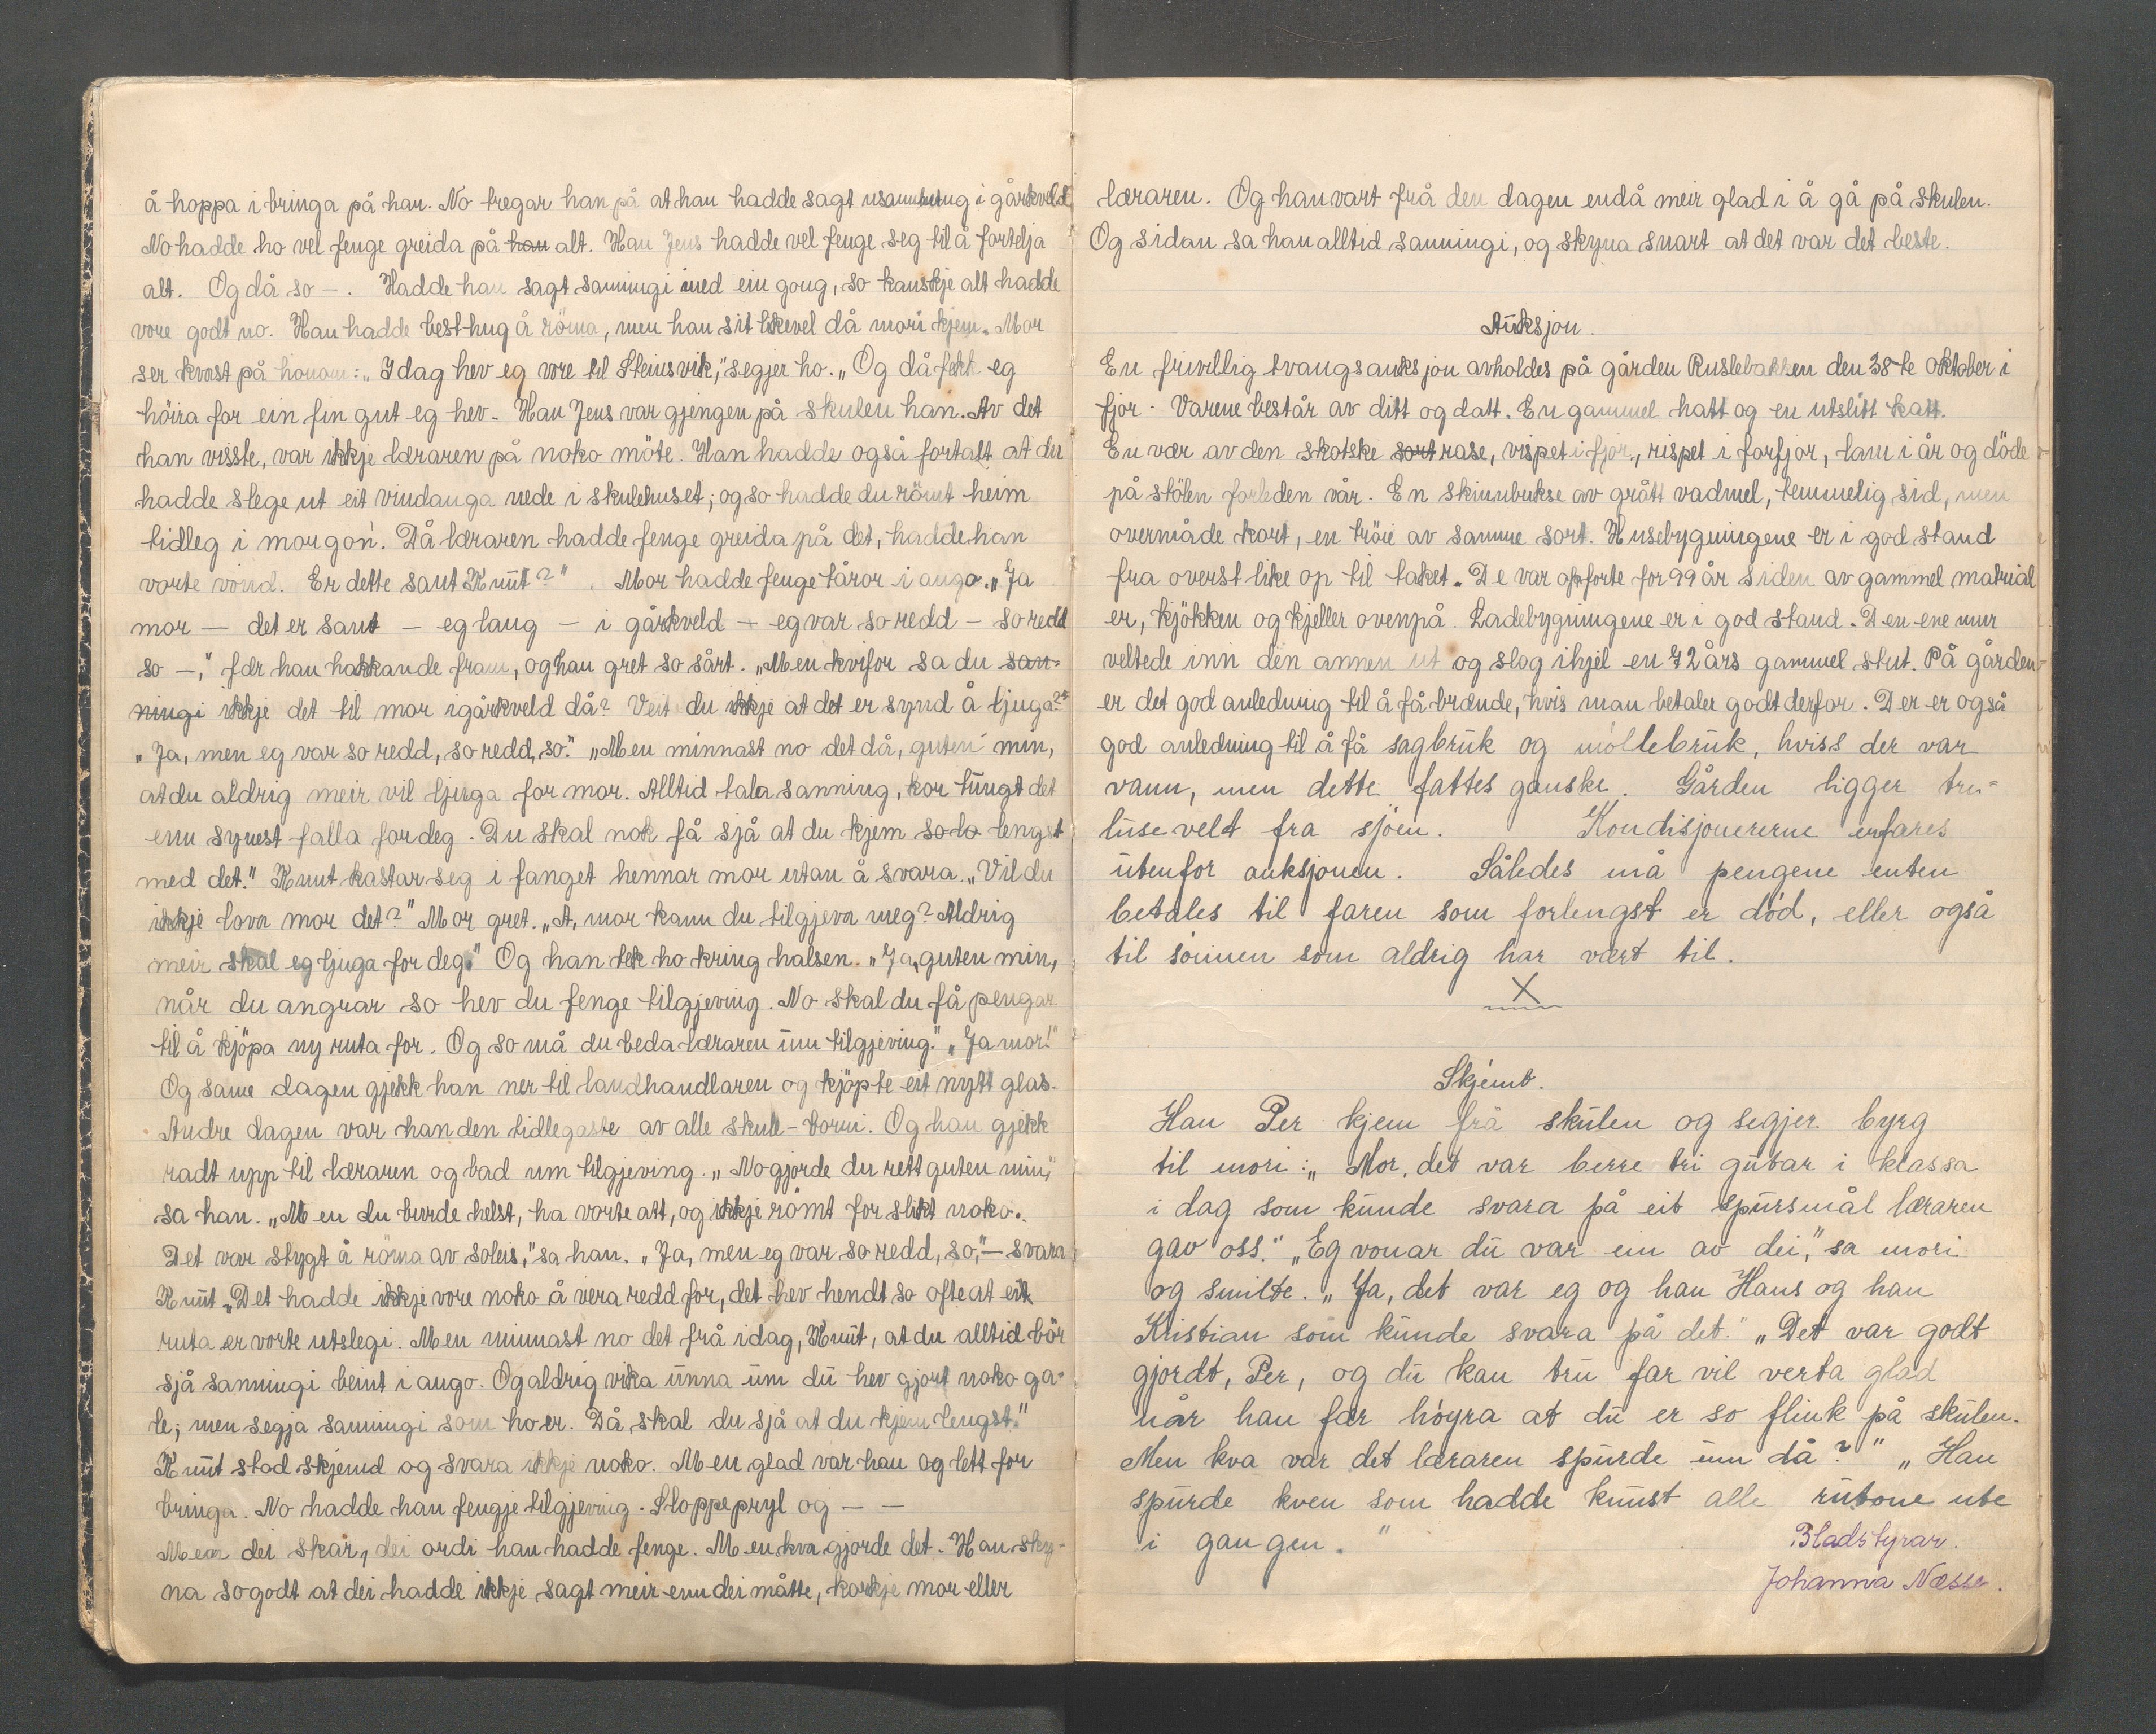 å hoppa i bringa på han. No tregar han på at han hadde sagt usanning i gårkveld
No hadde ho vel fenge greida på han alt. Han Jens hadde vel fenge seg til å fortelja
alt. Og då so —. Hadde han sagt sanningi med ein gong, so kanskje alt hadde
vore godt no. Han hadde best hug å röma, men han sit likevel då mori kjem. Mor
ser kvast på honom: „Idag hev eg vore til Steinsvik," segjer ho. „Og då fekk eg
höira for ein fin gut eg hev. Han Jens var gjengen på skulen han. Av det
han visste, var ikkje læraren på noko möte. Han hadde også fortalt at du
hadde slege ut eit vindauga nede i skulehuset; og so hadde du römt heim
tidleg i morgon. Då læraren hadde fenge greida på det, hadde han
vorte vond. Er dette sant Knut?" Mor hadde fenge tåror i augo. „Ja
mor — det er sant — eg laug — i gårkveld — eg var so redd — so redd
so —," fær han hakkande fram, og han gret so sårt. „Men kvifor sa du san-
ningi ikkje det til mor igårkveld då? Veit du ikkje at det er synd å ljuga?"
„Ja, men eg var so redd, so redd, so." „Men minnast no det då, guten min,
at du aldrig meir vil ljuga for mor. Alltid tala sanning, kor tungt det
enn synest falla for deg. Du skal nok få sjå at du kjem so lo lengst
med det." Knut kastar seg i fanget hennar mor utan å svara. „Vil du
ikkje lova mor det?" Mor gret. „Å, mor kann du tilgjeva meg? Aldrig
meir skal eg ljuga for deg." Og han tek ho kring halsen. „Ja, guten min,
når du angrar so hev du fenge tilgjeving. No skal du få pengar
til å kjöpa ny ruta for. Og so må du beda læraren um tilgjeving." „Ja mor!"
Og same dagen gjekk han ner til landhandlaren og kjöpte eit nytt glas.
Andre dagen var han den tidlegaste av alle skule-borni. Og han gjekk
radt upp til læraren og bad um tilgjeving. „No gjorde du rett guten min,"
sa han. „Men du burde helst, ha vorte att, og ikkje römt for slikt noko.
Det var stygt å röma av soleis," sa han. „Ja, men eg var so redd, so," — svara
Knut „Det hadde ikkje vore noko å vera redd for, det hev hendt so ofte at eit
ruta er vorte utslegi. Men minnast no det frå idag, Knut, at du alltid bör
sjå sanningi beint i augo. Og aldrig vika unna um du hev gjort noko ga-
le; men segja sanningi som ho er. Då skal du sjå at du kjem lengst."
Knut stod skjemd og svara ikkje noko. Men glad var han og lett for
bringa. No hadde han fengje tilgjeving. Stoppepryl og — —
Men dei skar, dei ordi han hadde fenge. Men kva gjorde det. Han sky-
na so godt at dei hadde ikkje sagt meir enn dei måtte, korkje mor eller
læraren. Og han vart frå den dagen endå meir glad i å gå på skulen.
Og sidan sa han alltid sanningi, og skyna snart at det var det beste.
Auksjon.
En frivillig tvangsauksjon avholdes på gården Ruslebakken den 38te oktober i
fjor. Varene består av ditt og datt. En gammel hatt og en utslitt katt.
En vær av den skotske sort rase, vispet i fjor, rispet i forfjor, lam i år og döde
på stölen forleden vår. En skinnbukse av grått vadmel, temmelig sid, men
overmåde kort, en tröie av samme sort. Husebygningene er i god stand
fra overst like op til taket. De var opforte for 99 år siden av gammel matrial
er, kjökken og kjeller ovenpå. Ladebygningene er i god stand. Den ene mur
veltede inn den annen ut og slog ihjel en 72 års gammel stut. På gården
er det god anledning til å få brænde, hvis man betaler godt derfor. Der er også
god anledning til å få sagbruk og möllebruk, hviss der var
vann, men dette fattes ganske. Gården ligger tre-
lusevelt fra sjöen. Kondisjonererne erfares
utenfor auksjonen. Således må pengene enten
betales til faren som forlengst er död, eller også
til sönnen som aldrig har vært til.
X
Skjemt.
Han Per kjem frå skulen og segjer byrg
til mori: „Mor, det var berre tri gutar i klassa
i dag som kunde svara på eit spursmål læraren
gav oss." „Eg vonar du var ein av dei," sa mori
og smilte. „Ja, det var eg og han Hans og han
Kristian som kunde svara på det." „Det var godt
gjordt, Per, og du kan tru far vil verta glad
når han fær höyra at du er so flink på skulen.
Men kva var det læraren spurde um då?" „Han
spurde kven som hadde knust alle rutone ute
i gangen."
Bladstyrar.
Johanna Næsse.